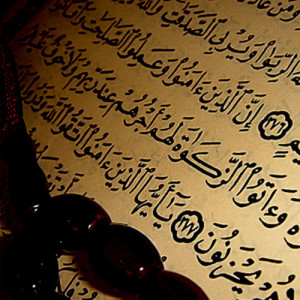 وَمَنْ عَادَ
ٱلرِّبَوٰا۟ وَيُرْبِى ٱلصَّدَقَٰتِ وَٱللَّهُ
٢٧٦ إِنَّ ٱلَّذِينَ ءَامَنُوا۟ وَعَمِلُوا۟ ٱلصَّٰلِحَٰتِ
وَءَاتَوُا۟ ٱلزَّكَوٰةَ لَهُمْ أَجْرُهُمْ عِندَ رَبِّهِمْ وَلَا خَوْفٌ
يَحْزَنُونَ ٢٧٧ يَٰٓأَيُّهَا ٱلَّذِينَ ءَامَنُوا۟ ٱتَّقُوا۟ ٱللَّهَ وَذَرُوا۟